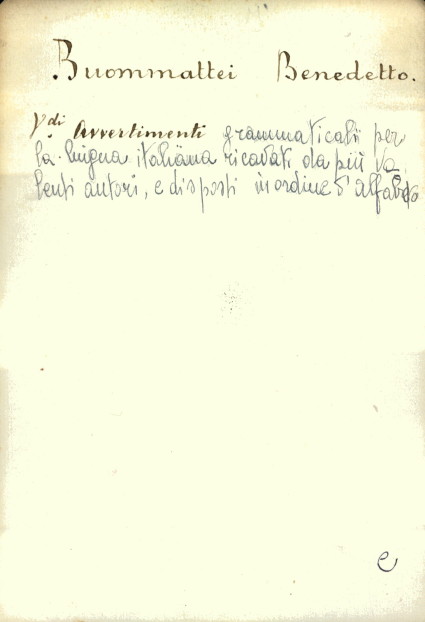 Buommattei Benedetto.
V.di Avvertimenti grammaticali per
la lingua italiana ricavati da più va
lenti autori, e disposti in ordine d'alfabeto
e